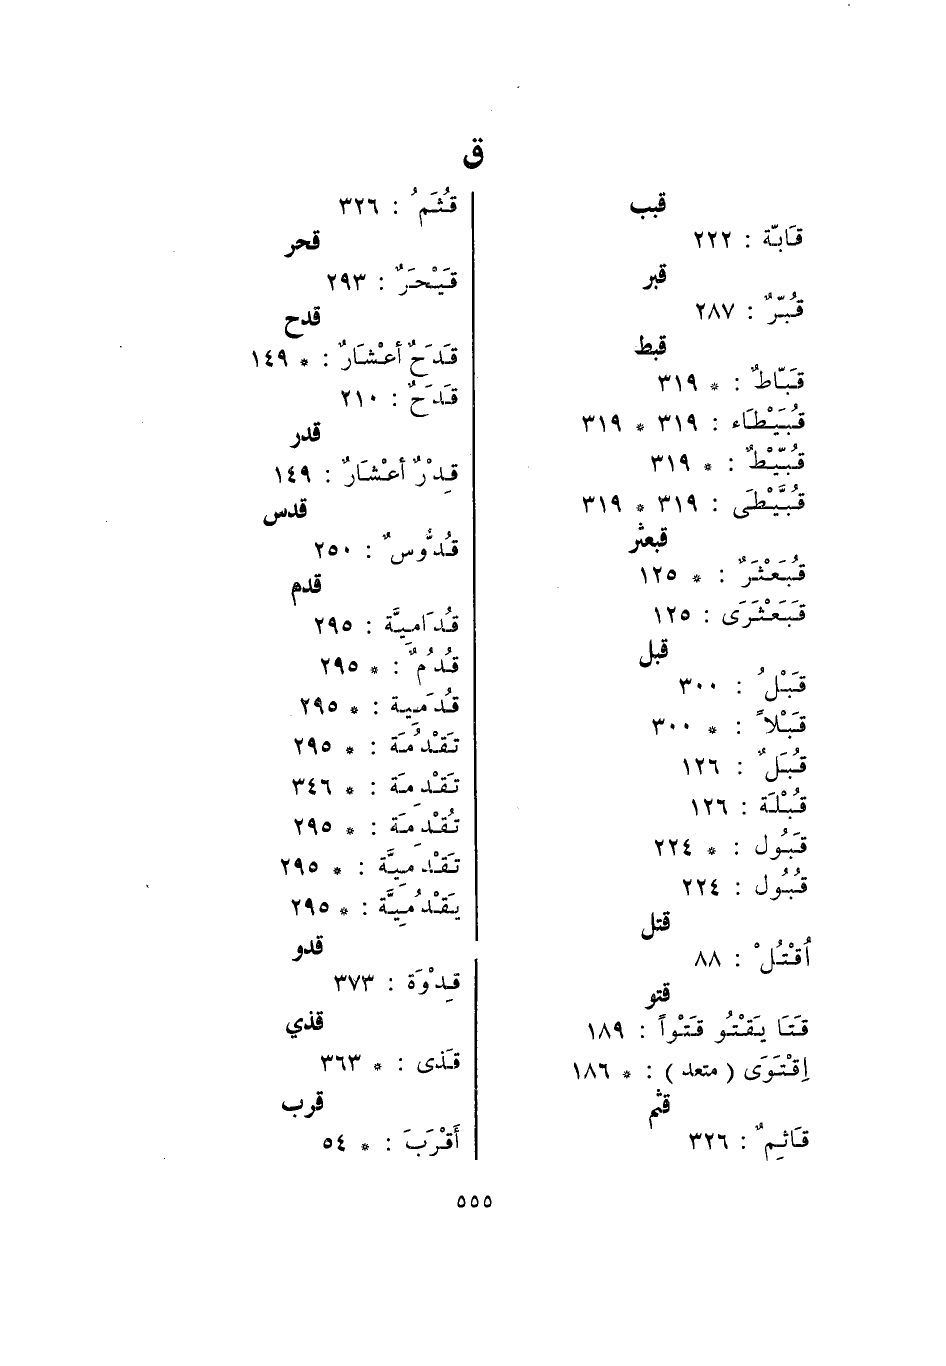 ق
قبب
قَابَّة : ٢٢٢
قبر
قُبَّرٌ : ٢٨٧
قبط
قَبَّاطٌ : * ٣١٩
قُبَيْطَاء : ٣١٩ * ٣١٩
قُبَّيْطٌ : * ٣١٩
قُبَّيْطَى : ٣١٩ * ٣١٩
قبعثر
قُبَعْثَرٌ : * ١٢٥
قَبَعْثَرَى : ١٢٥
قبل
قَبْلُ : ٣٠٠
قَبْلاً : * ٣٠٠
قُبَلٌ : ١٢٦
قُبْلَة : ١٢٦
قَبُول : * ٢٢٤
قُبُول : ٢٢٤
قتل
اُقْتُلْ : ٨٨
قتو
قَتَا يَقْتُو قَتْواً : ١٨٩
إقْتَوَى ( متعد ) : * ١٨٦
قثم
قَاثِمٌ : ٣٢٦
قُثَمُ : ٣٢٦
قحر
قَيْحَرٌ : ٢٩٣
قدح
قَدَحٌ أعْشَارٌ : * ١٤٩
قَدَحٌ : ٢١٠
قدر
قِدْرٌ أعْشَارٌ : ١٤٩
قدس
قُدُّوسٌ : ٢٥٠
قدم
قُدَامِيَّة : ٢٩٥
قُدُمٌ : * ٢٩٥
قُدَمِية : * ٢٩٥
تَقْدُمَة : * ٢٩٥
تَقْدِمَة : * ٣٤٦
تُقْدِمَة : * ٢٩٥
تَقْدَمِيَّة : * ٢٩٥
يَقْدُمِيَّة : * ٢٩٥
قدو
قِدْوَة : ٣٧٣
قذي
قَذى : * ٣٦٣
قرب
أَقْرَبَ : * ٥٤
٥٥٥